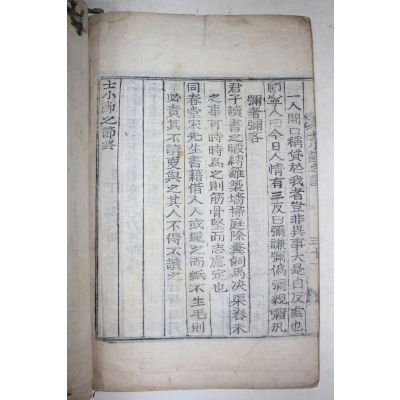 一人開口稱貸於我者豈非異事大是自反處也
顧寧人曰今日人情有三反曰彌謙彌僞彌親彌汎
彌奢彌吝
君子讀書之暇縛籬築墻掃庭除糞飼馬決渠舂米
之事有時時爲之則筋骨堅而志慮定也
同春堂宋先生書籍借人人或還之而紙不生毛則
必責其不讀更與之其人不得不讀之
士小節之節終